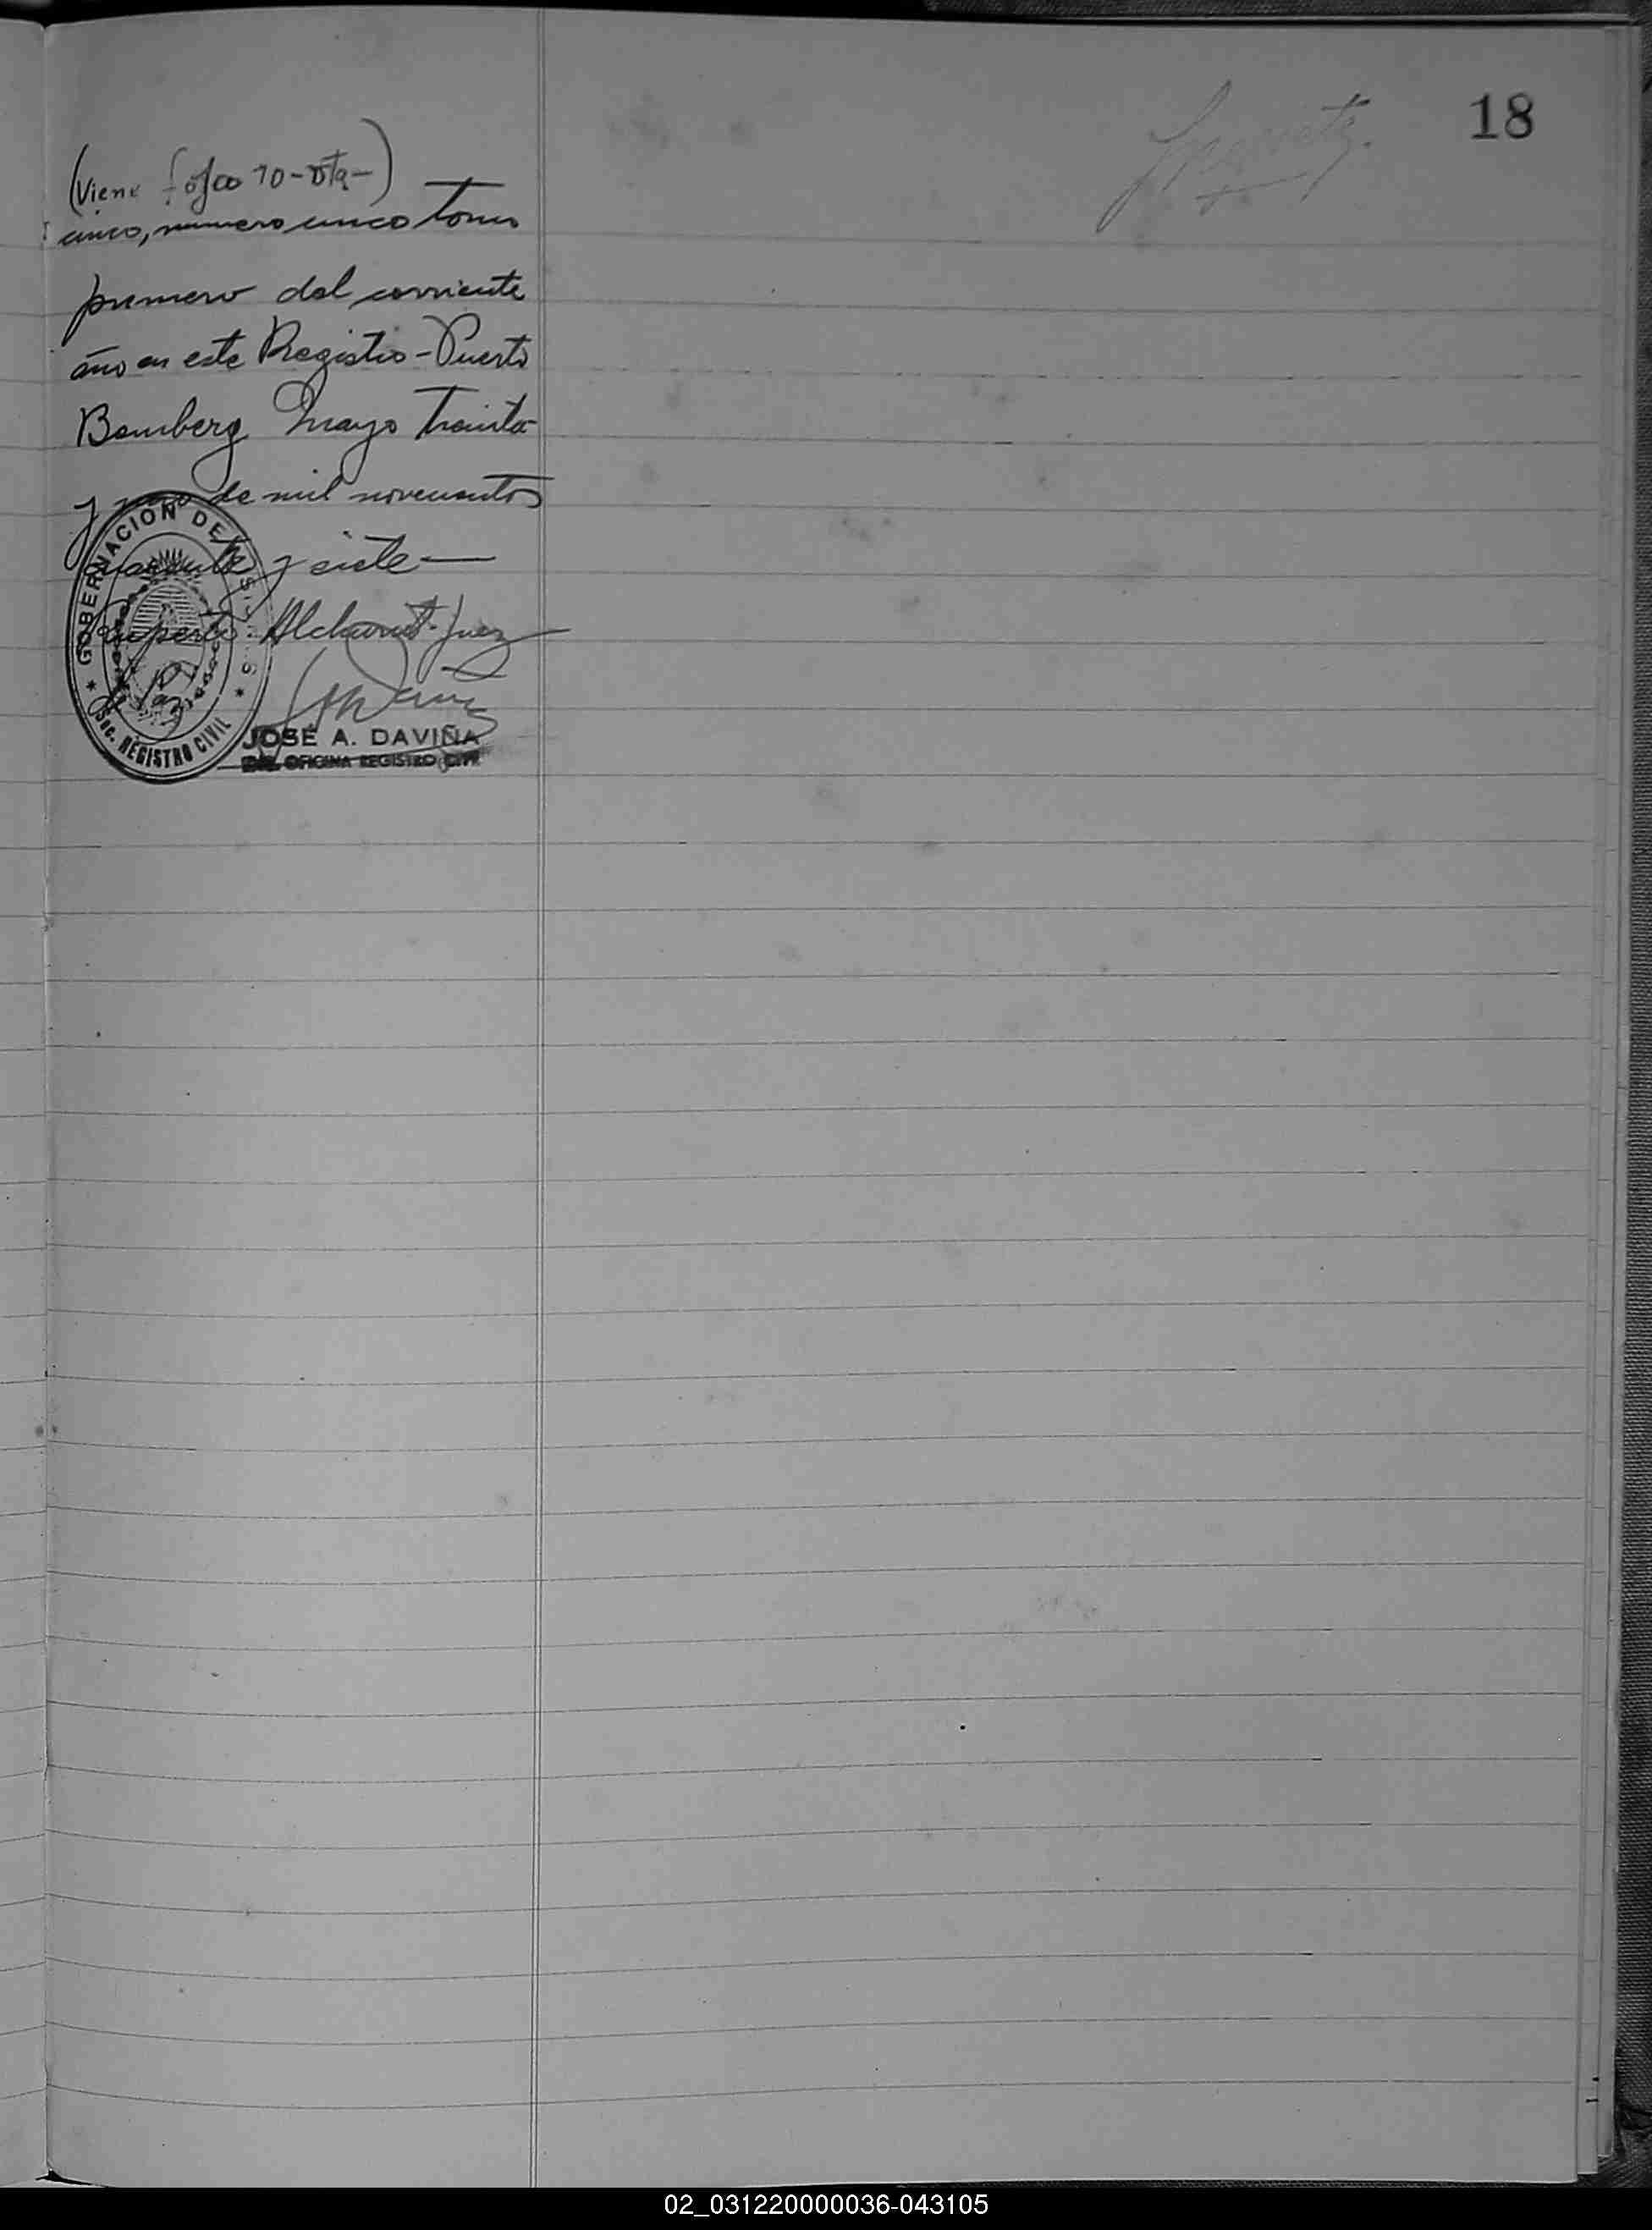 18
(Viene foja 10-vta-)
cinco, numero cinco tomo
primero del corriente
año en este Registro - Puerto
Bemberg Mayo Treinta
y uno de mil novecientos
cuarenta y siete —
Ruperto Alchurrut. Juez
de Paz
GOBERNACION DE MISIONES
Sec. REGISTRO CIVIL
JOSÉ A. DAVIÑA
OFICINA REGISTRO CIVIL
02_031220000036-043105